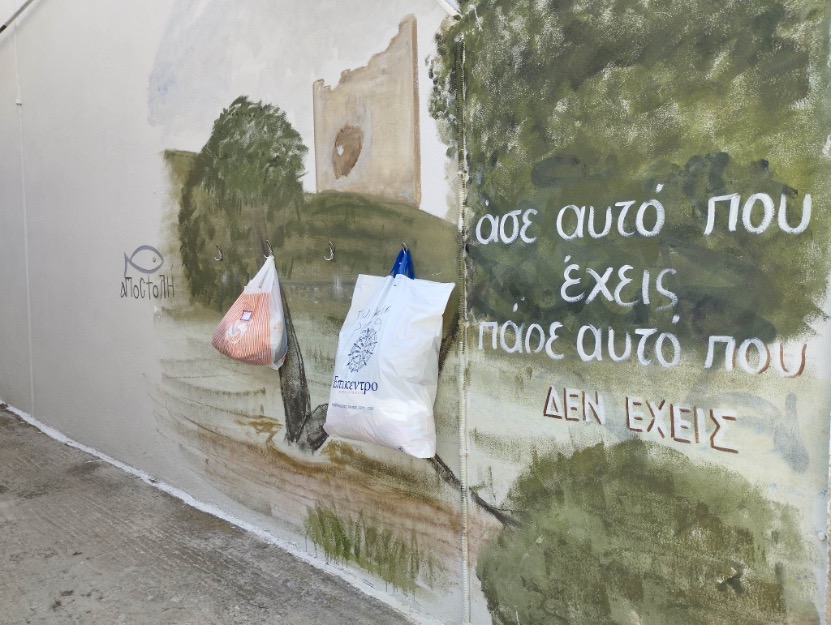 αποστολη
Επίκεντρο
άσε αυτό που
έχεις
πάρε αυτό που
ΔΕΝ ΕΧΕΙΣ